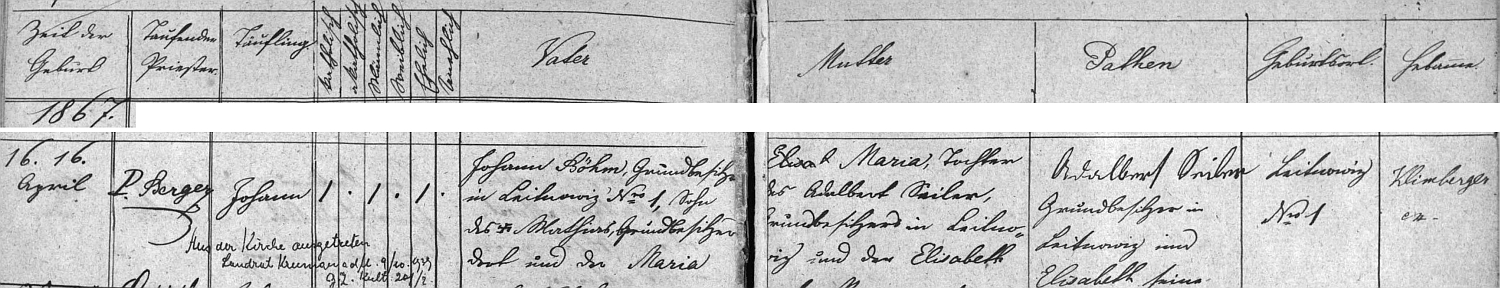 Zeit der Geburt
Taufender Priester
Täufling
katholisch
Männlich
Weiblich
Ehelich
Unehelich
Vater
Mutter
Pathen
Geburtsort.
Hebamme
1867.
16. 16.
April
P. Berger
Johann
1 . 1 . 1 .
Johann Böhm, Grundbesitzer
in Leitnowiz Nro 1, Sohn
des † Mathias, Grundbesitzer
dort und der Maria
Maria, Tochter
des Adalbert Seiler,
Grundbesitzers in Leitno-
wiz und der Elisabeth
Adalbert Seiler
Grundbesitzer in
Leitnowiz und
Elisabeth seine
Leitnowiz
Nro 1
Klimberger
Aus der Kirche ausgetreten
Landrat Krummau a.d.M.